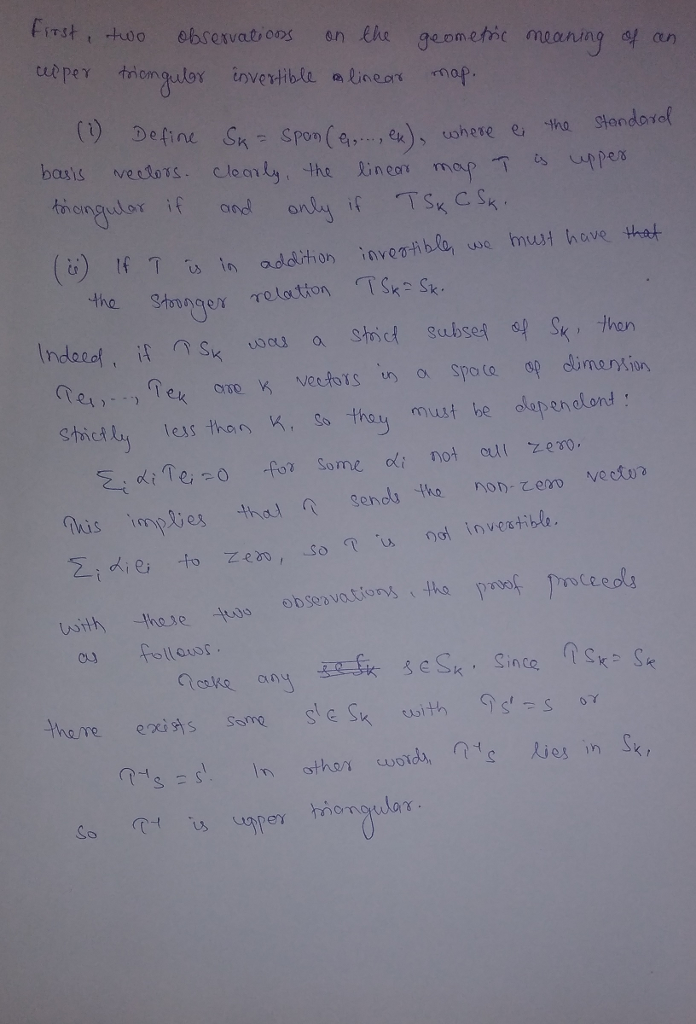 First, two observations on the geometric meaning of an
upper triangular invertible linear map.
(i) Define Sk = span(e1,..., ek), where ei the standard
basis vectors. Clearly, the linear map T is upper
triangular if and only if TSk ⊂ Sk.
(ii) If T is in addition invertible, we must have that
the stronger relation TSk = Sk.
Indeed, if TSk was a strict subset of Sk, then
Te1,..., Tek are k vectors in a space of dimension
strictly less than k, so they must be dependent:
Σi αiTei = 0 for some αi not all zero.
This implies that T sends the non-zero vector
Σi αiei to zero, so T is not invertible.
With these two observations, the proof proceeds
as follows.
Take any s∈Sk s∈Sk. Since TSk = Sk
there exists some s'∈ Sk with Ts' = s or
T⁻¹s = s'. In other words, T⁻¹s lies in Sk,
so T⁻¹ is upper triangular.